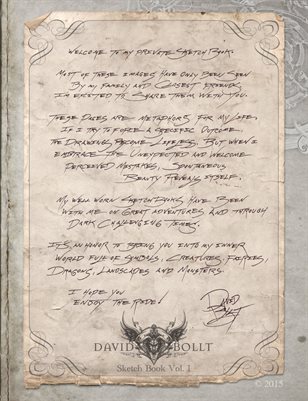 Welcome to my private Sketch Book.
Most of these images have only been seen
by my family and closest friends.
I'm excited to share them with you.
These pages are metaphors for my life.
If I try to force a specific outcome
the drawings become lifeless. But when I
embrace the unexpected and welcome
perceived mistakes, spontaneous
beauty reveals itself.
My well worn sketchbooks have been
with me on great adventures and through
dark challenging times.
It's an honor to bring you into my inner
world full of symbols, creatures, faeries,
dragons, landscapes and monsters.
I hope you
enjoy the ride!
David
Bollt
DAVID BOLLT
Sketch Book Vol. 1
© 2015